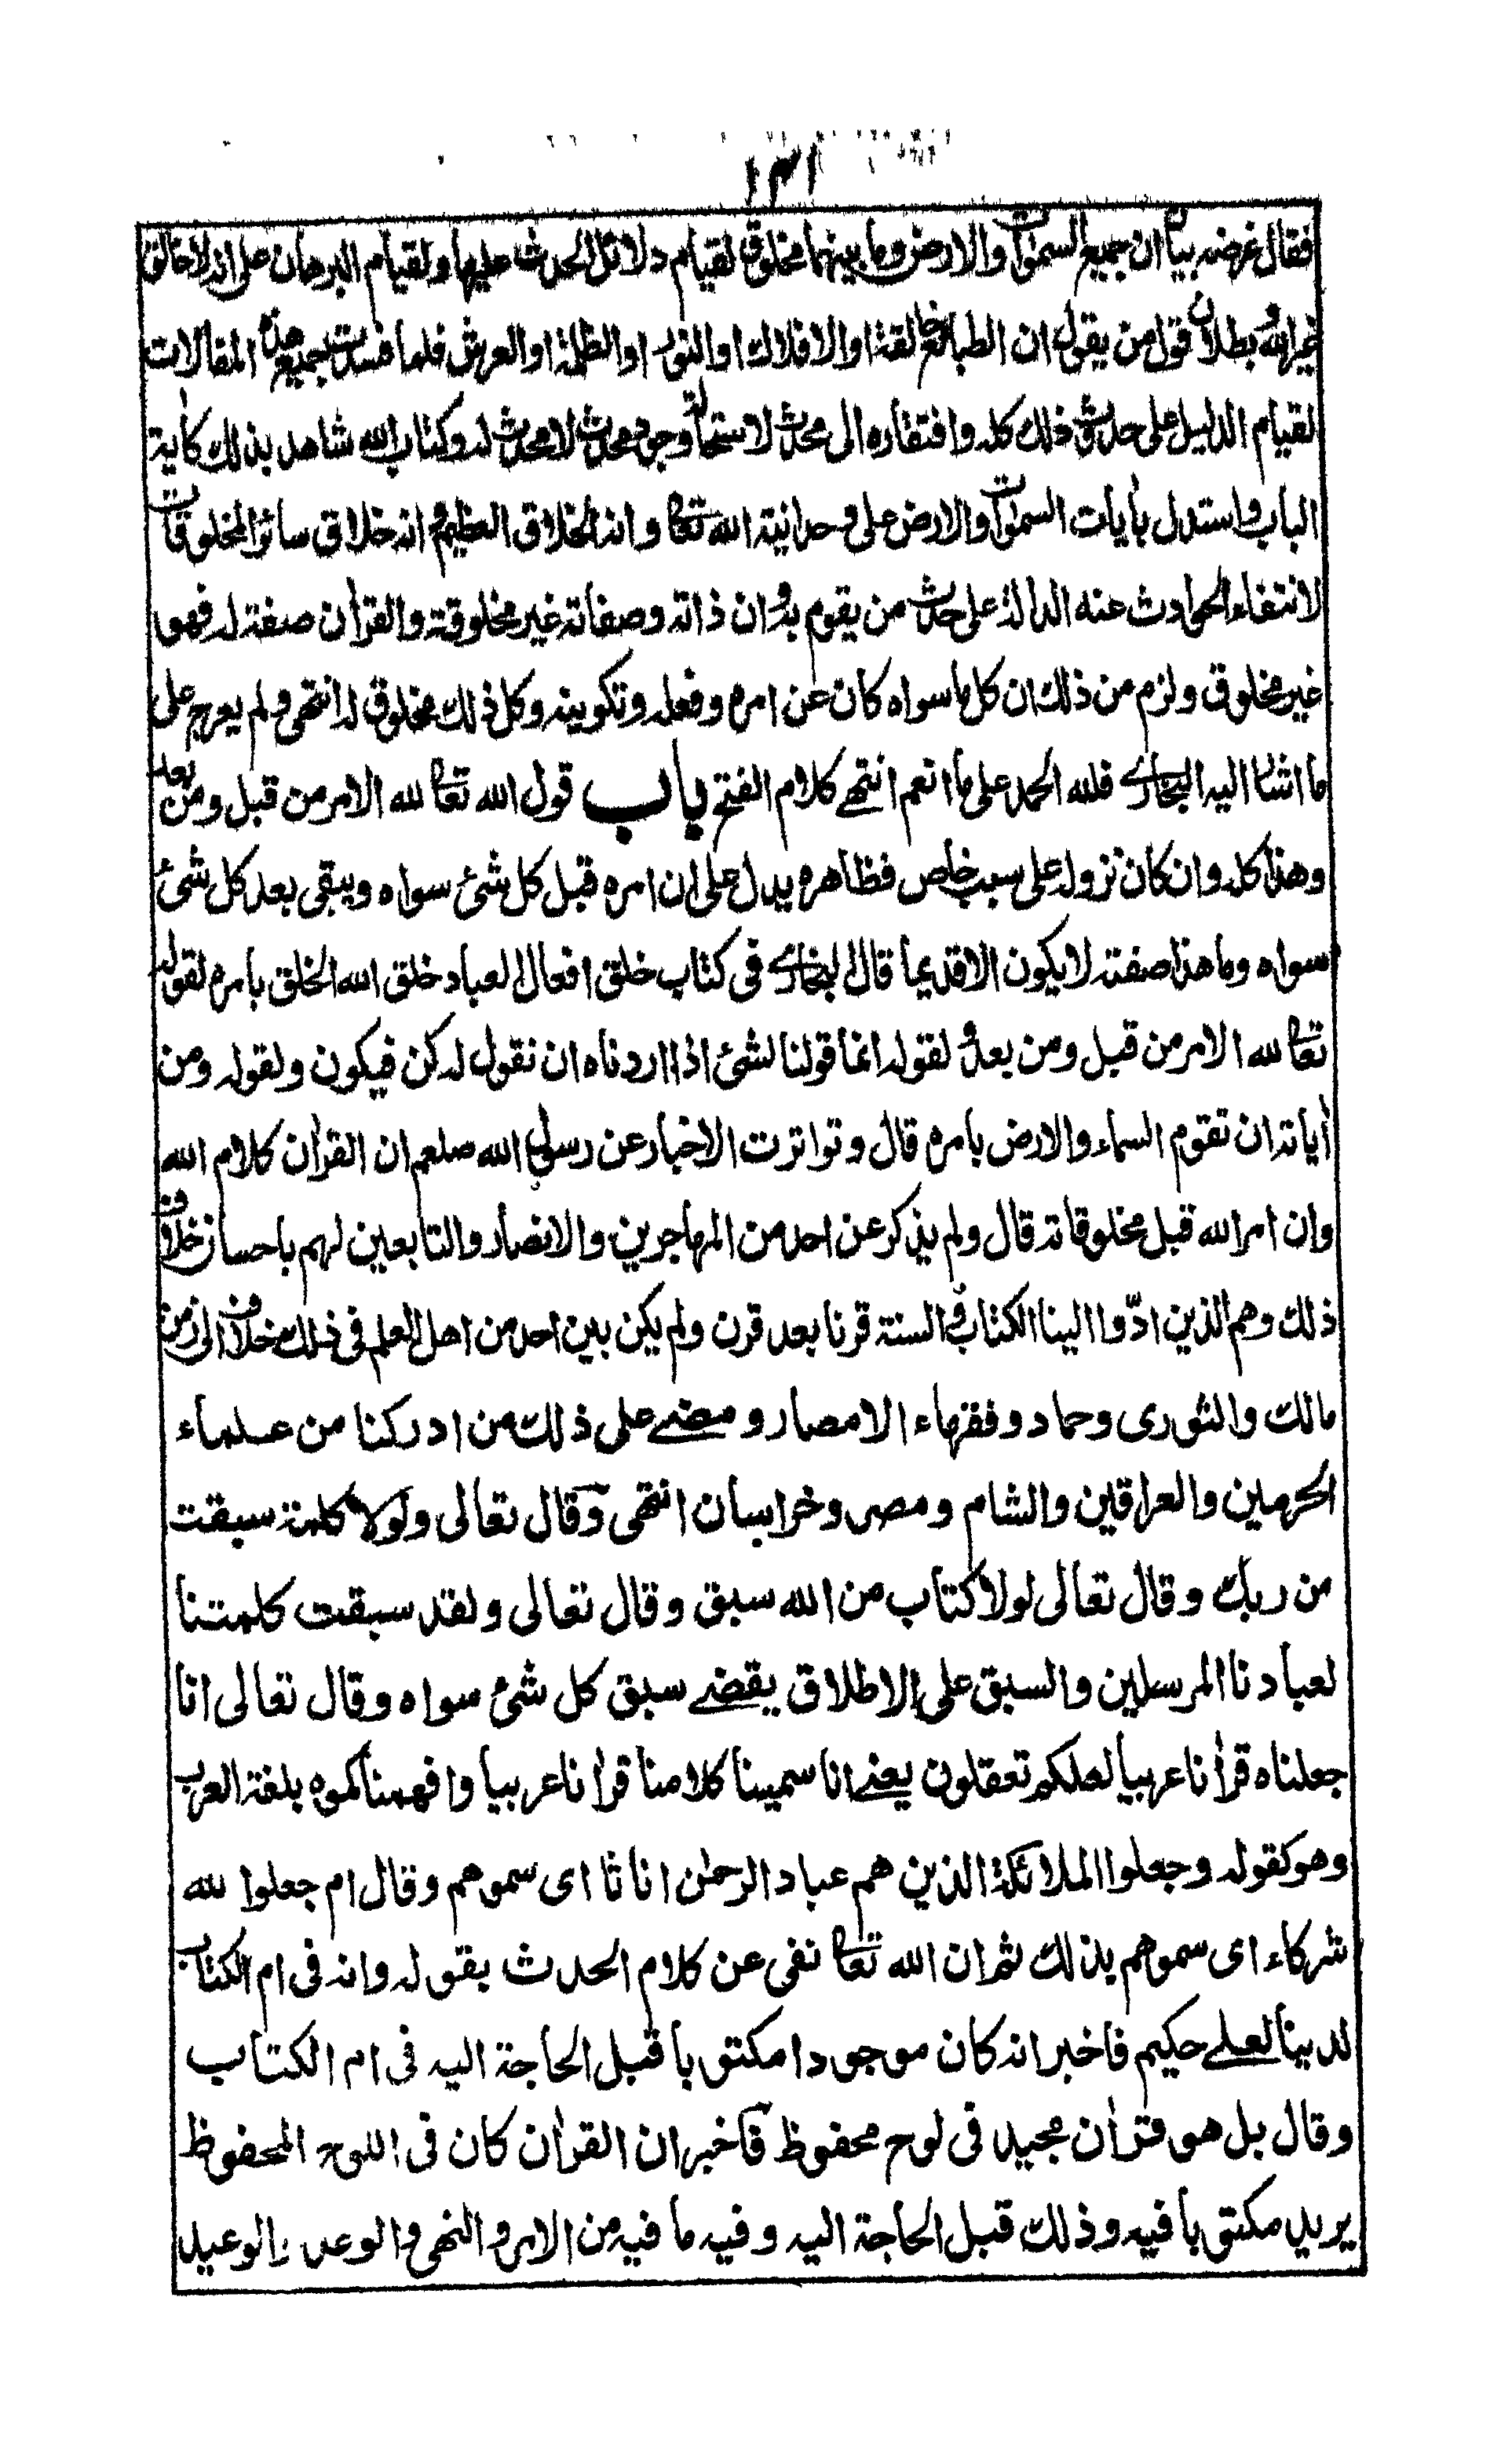 ۱۳۱
فقال غرضه بيان ان جميع السموات والارض وما بينهما مخلوق لقيام دلائل الحدث عليها ولقيام البرهان على انه لا خالق
غير الله وبطلان قول من يقول ان الطبائع خالقة او الافلاك او النور او الظلمة او العرش فلما فسدت جميع هذه المقالات
لقيام الدليل على حدوث ذلك كله وافتقاره الى محدث لاستحالة وجود محدث لا محدث له وكتاب الله شاهد بذلك كاية
الباب واستدل بأيات السموات والارض على وحدانية الله تعا وانه الخلاق العظيم وانه خلاق سائر المخلوقات
لانتفاء الحوادث عنه الدالة على حدث من يقوم به وان ذاته وصفاته غير مخلوقة والقرآن صفة له فهو
غير مخلوق ولزم من ذلك ان كل ما سواه كان عن امره وفعله وتكوينه وكل ذلك مخلوق له انتهى ولم يعرج على
ما اشار اليه البخاري فلله الحمد على ما انعم انتهى كلام الفتح باب قول الله تعا لله الامر من قبل ومن بعد
وهذا كله وان كان نزوله على سبب خاص فظاهره يدل على ان امره قبل كل شئ سواه ويبقى بعد كل شئ
سواه وما هذا صفته لا يكون الا قديما قال البخاري في كتاب خلق افعال العباد خلق الله الخلق بامره لقوله
تعا لله الامر من قبل ومن بعد ولقوله انما قولنا لشئ اذا اردناه ان نقول له كن فيكون ولقوله ومن
أياته ان تقوم السماء والارض بامره قال وتواترت الاخبار عن رسول الله صلعم ان القرآن كلام الله
وان امر الله قبل مخلوقاته قال ولم يذكر عن احد من المهاجرين والانصار والتابعين لهم باحسان خلاف
ذلك وهم الذين ادّوا الينا الكتاب والسنة قرنا بعد قرن ولم يكن بين احد من اهل العلم في ذلك خلاف الى زمن
مالك والثورى وحماد وفقهاء الامصار ومضى على ذلك من ادركنا من علماء
الحرمين والعراقين والشام ومصر وخراسان انتهى وقال تعالى ولولا كلمة سبقت
من ربك وقال تعالى لولا كتاب من الله سبق وقال تعالى ولقد سبقت كلمتنا
لعبادنا المرسلين والسبق على الاطلاق يقضى سبق كل شئ سواه وقال تعالى انا
جعلناه قرأنا عربيا لعلكم تعقلون يعنى انا سميناه كلامنا قرأنا عربيا وافهمناكموه بلغة العرب
وهو كقوله وجعلوا الملائكة الذين هم عباد الرحمن اناثا اى سموهم وقال ام جعلوا لله
شركاء اى سموهم بذلك ثم ان الله تعا نفى عن كلام الحدث بقوله وانه فى ام الكتاب
لدينا لعلى حكيم فاخبر انه كان موجودا مكتوبا قبل الحاجة اليه فى ام الكتاب
وقال بل هو قرأن مجيد فى لوح محفوظ فاخبر ان القرأن كان فى اللوح المحفوظ
يريد مكتوبا فيه وذلك قبل الحاجة اليه وفيه ما فيه من الامر والنهى والوعد والوعيد